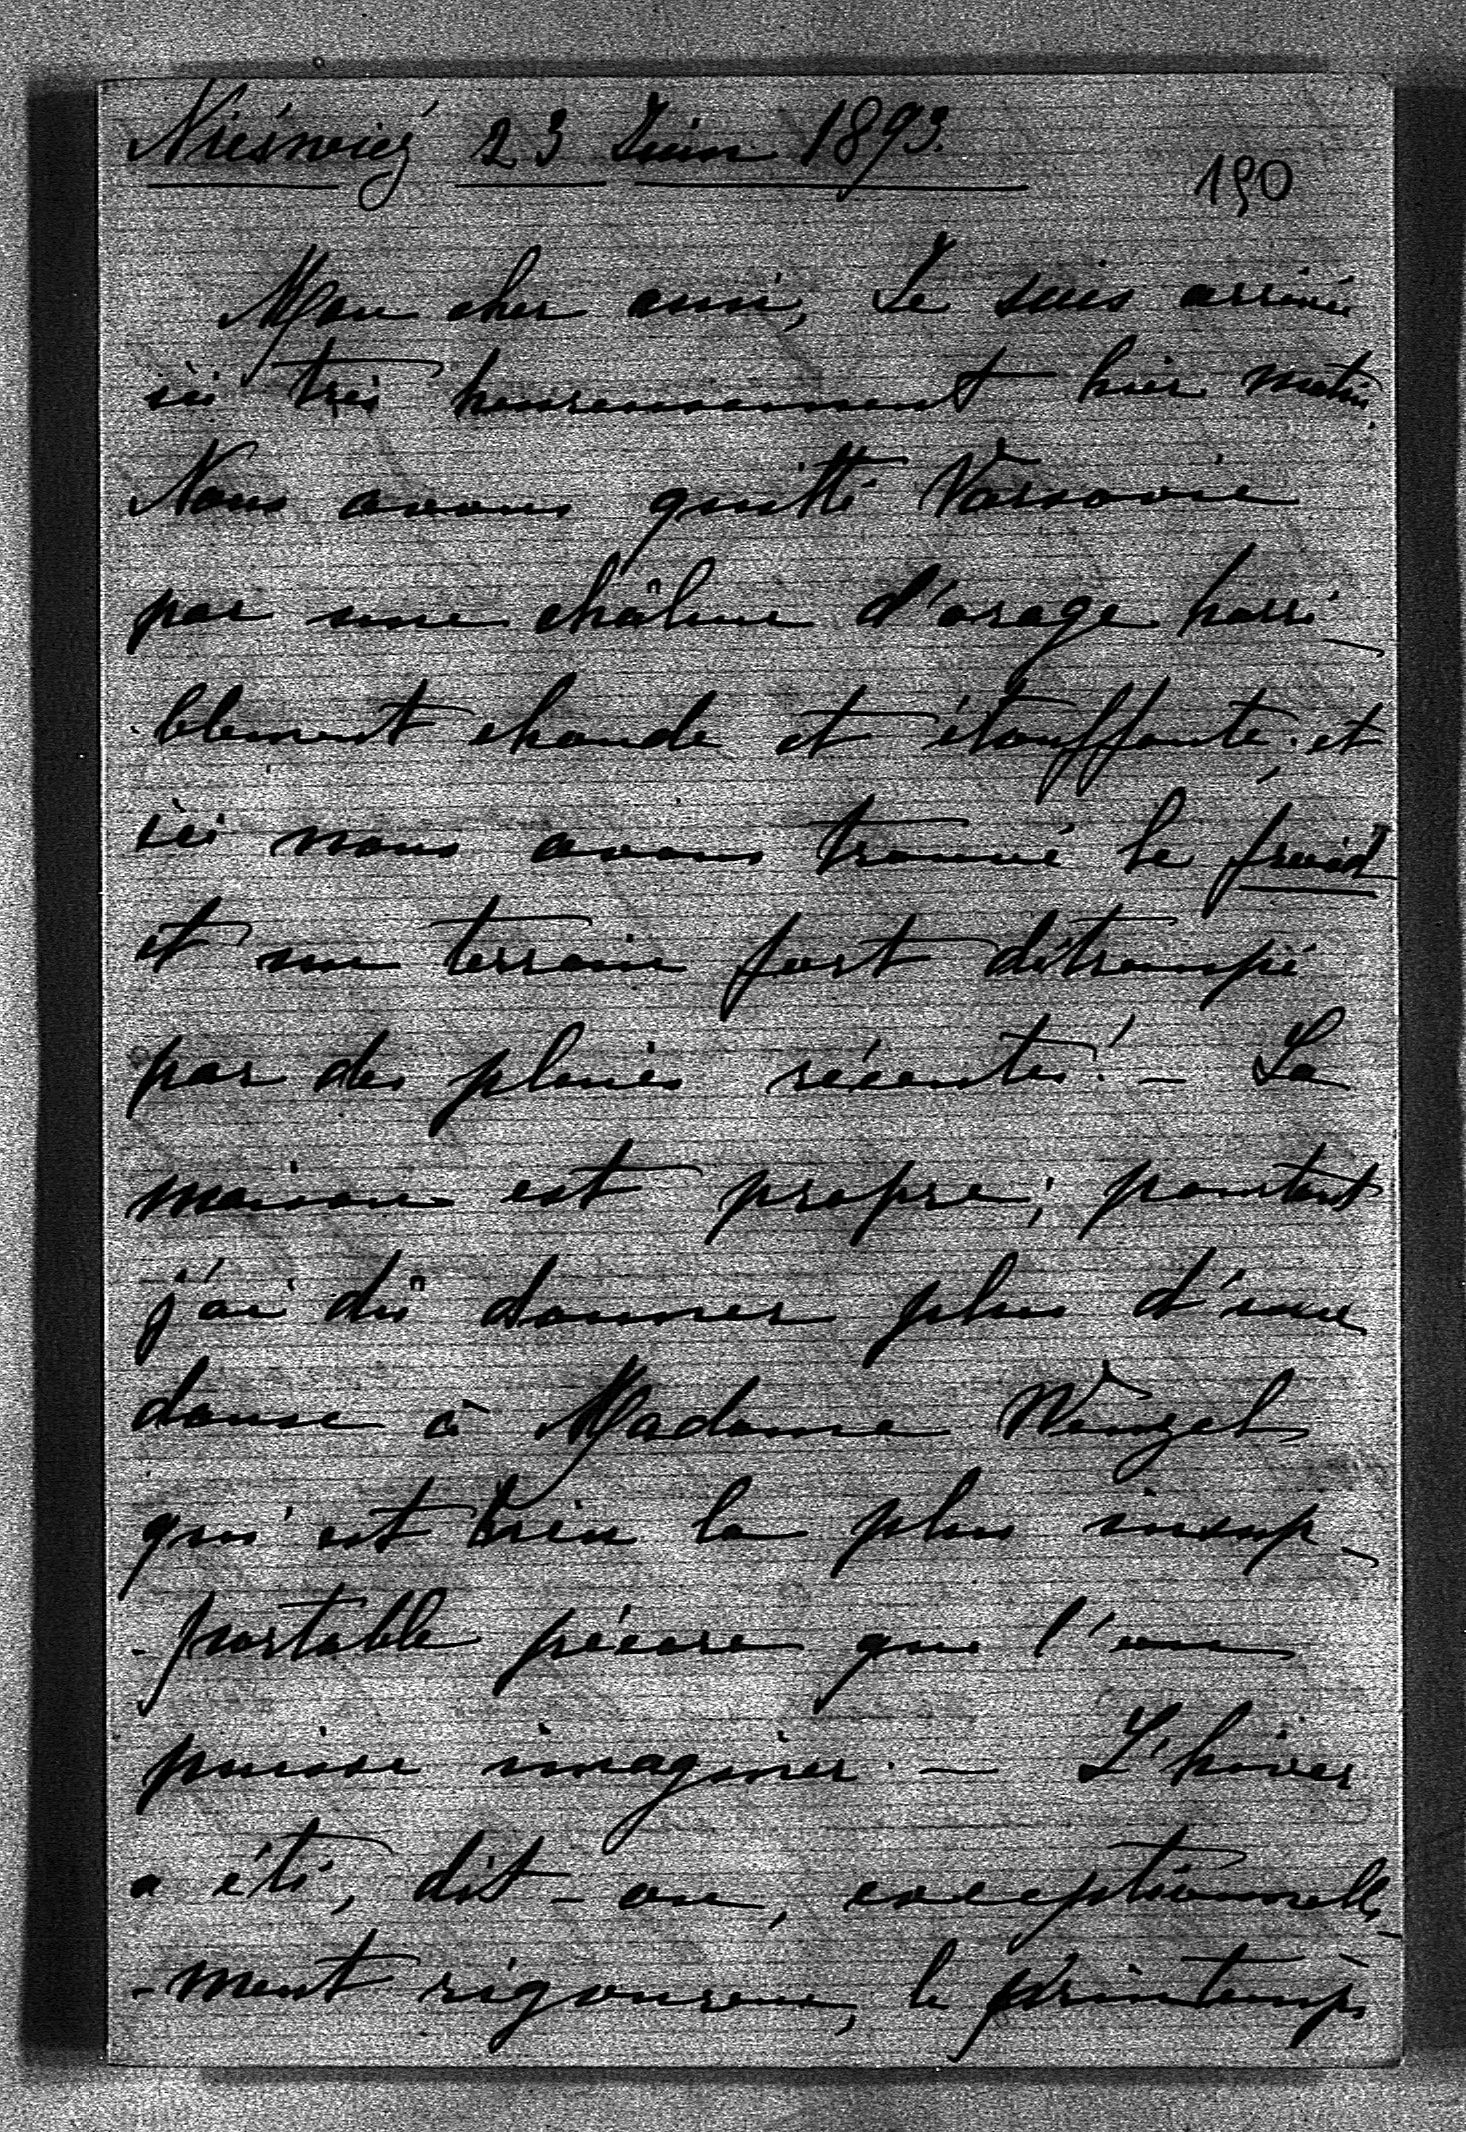 Nieśwież 23 Juin 1893.
190
Mon cher ami, Je suis arrivée
ici très heureusement hier matin.
Nous avons quitté Varsovie
par une châleur d'orage horri-
-blement chaude et étouffante, et
ici nous avons trouvé le froid
et un terrain fort détrempé
par des pluies récentes! — La
maison est propre; pourtant
j'ai dû donner plus d'une
danse à Madame Wenzel
qui est bien la plus insup-
-portable pécore que l'on
puisse imaginer. — L'hiver
a été, dit-on, exceptionnelle-
-ment rigoureux, le printemps